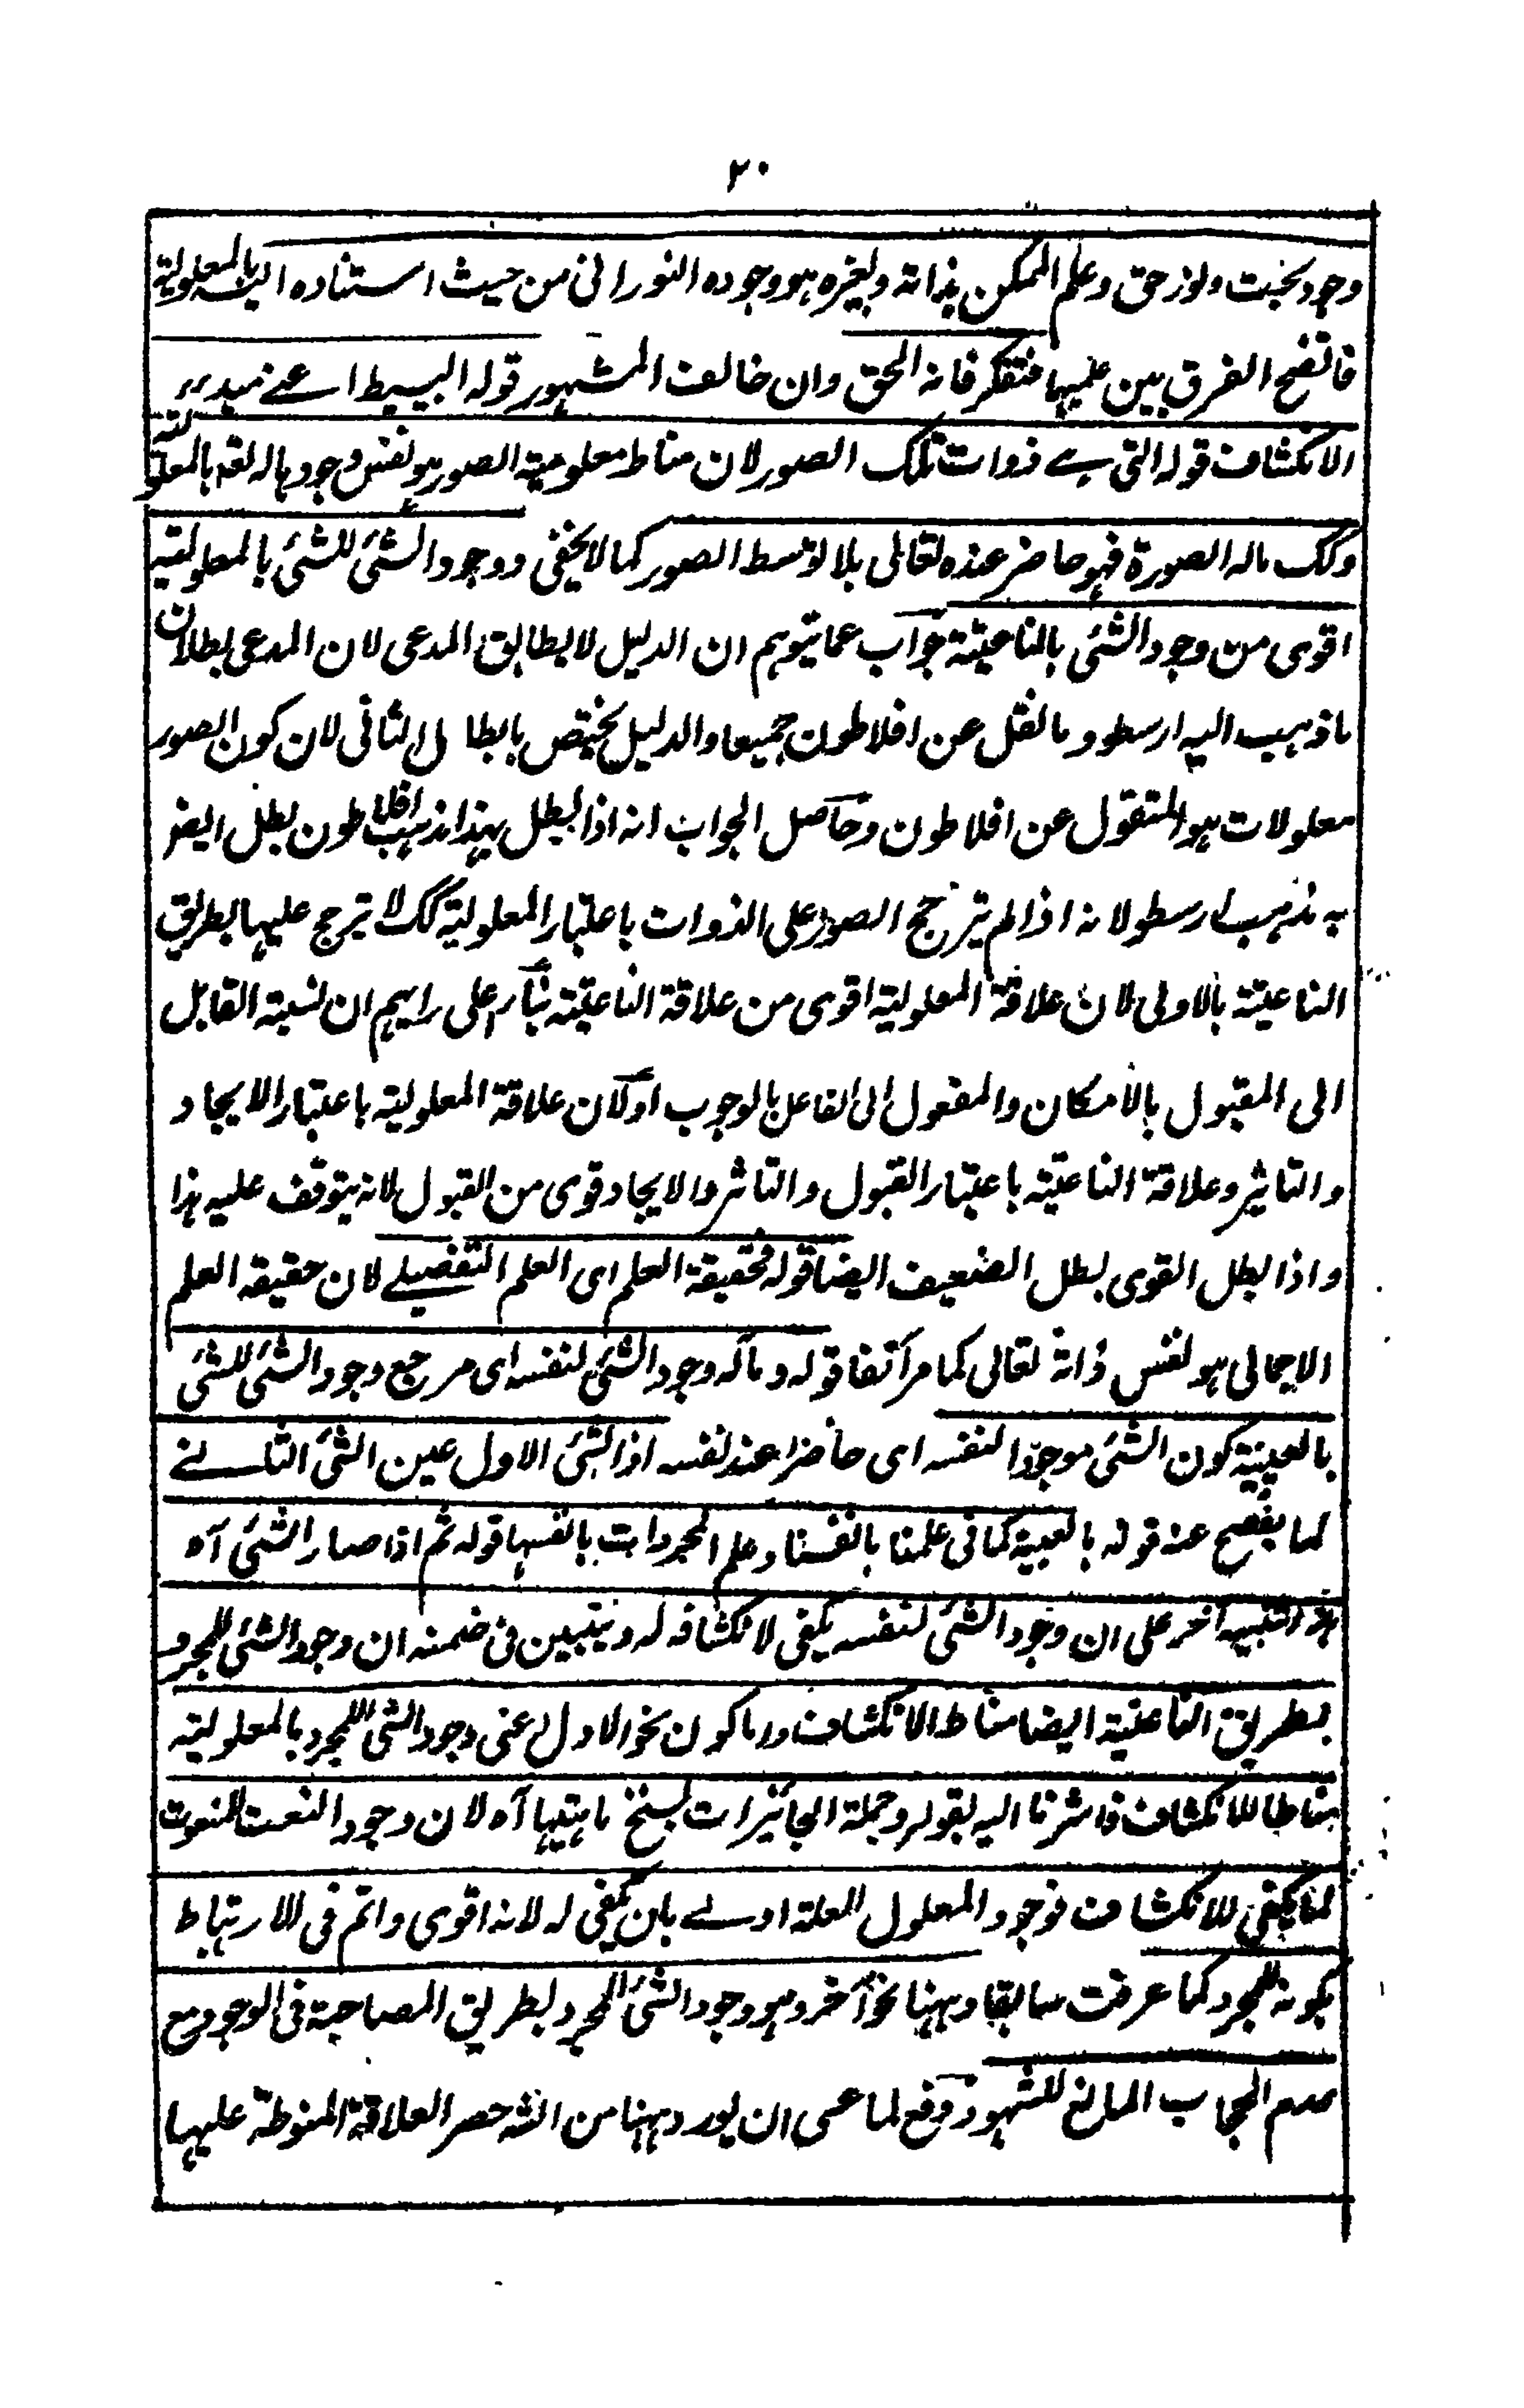 ٢٠
وجود بحت ونور حق وعلم الممكن بذاته ولغيره هو وجوده النوراني من حيث استناده اليه بالمعلولية
فاتضح الفرق بين علميهما فتفكر فانه الحق وان خالف المشهور قوله البسيط اعنے مبدء
الانكشاف قوله التي هے ذوات تلك الصور لان مناط معلومية الصور هو نفس وجودها له تعه بالمعلولية
وكك ماله الصورة فهو حاضر عنده تعالى بلا توسط الصور كما لا يخفى ووجود الشئ للشئ بالمعلولية
اقوى من وجود الشئ بالناعتية جواب عما يتوهم ان الدليل لا يطابق المدعى لان المدعى بطلان
ما ذهب اليه ارسطو وما نقل عن افلاطون جميعا والدليل يختص بابطال الثاني لان كون الصور
معلولات هو المنقول عن افلاطون وحاصل الجواب انه اذا بطل بهذا مذهب افلاطون بطل ايضا
به مذهب ارسطو لانه اذا لم يترجح الصور على الذوات باعتبار المعلولية كك لا يترجح عليها بطريق
الناعتية بالاولى لان علاقة المعلولية اقوى من علاقة الناعتية بناء على رايهم ان نسبة القابل
الى المقبول بالامكان والمفعول الى الفاعل بالوجوب او لان علاقة المعلولية باعتبار الايجاد
والتاثير وعلاقة الناعتية باعتبار القبول والتاثر والايجاد قوى من القبول لانه يتوقف عليه هذا
واذا بطل القوى بطل الضعيف ايضا قوله فحقيقة العلم اى العلم التفصيلے لان حقيقة العلم
الاجمالى هو نفس ذاته تعالى كما مر آنفا قوله وماله وجود الشئ لنفسه اى مرجع وجود الشئ للشئ
بالعينية كون الشئ موجودا لنفسه اى حاضرا عند نفسه اذ الشئ الاول عين الشئ الثانے
كما يفصح عنه قوله بالعينية كما فى علمنا بانفسنا وعلم المجردات بانفسها قوله ثم اذا صار الشئ آه
هذا تنبيه آخر على ان وجود الشئ لنفسه يكفى لانكشافه له ويتبين فى ضمنه ان وجود الشئ للمجرد
بطريق الناعتية ايضا مناط الانكشاف واما كون نحو الاول اعنى وجود الشئ للمجرد بالمعلولية
مناطا للانكشاف فاشرنا اليه بقوله وجملة الجائزات بسنخ ماهيتها آه لان وجود النعت للمنعوت
لما يكفى للانكشاف فوجود المعلول للعلة اولے بان يكفى له لانه اقوى واتم فى الارتباط
بكونه للمجرد كما عرفت سابقا وههنا نحو آخر وهو وجود الشئ للمجرد بطريق المصاحبة فى الوجود مع
عدم الحجاب المانع للشهود دفع لما عسى ان يورد ههنا من انه حصر العلاقة المنوطة عليها